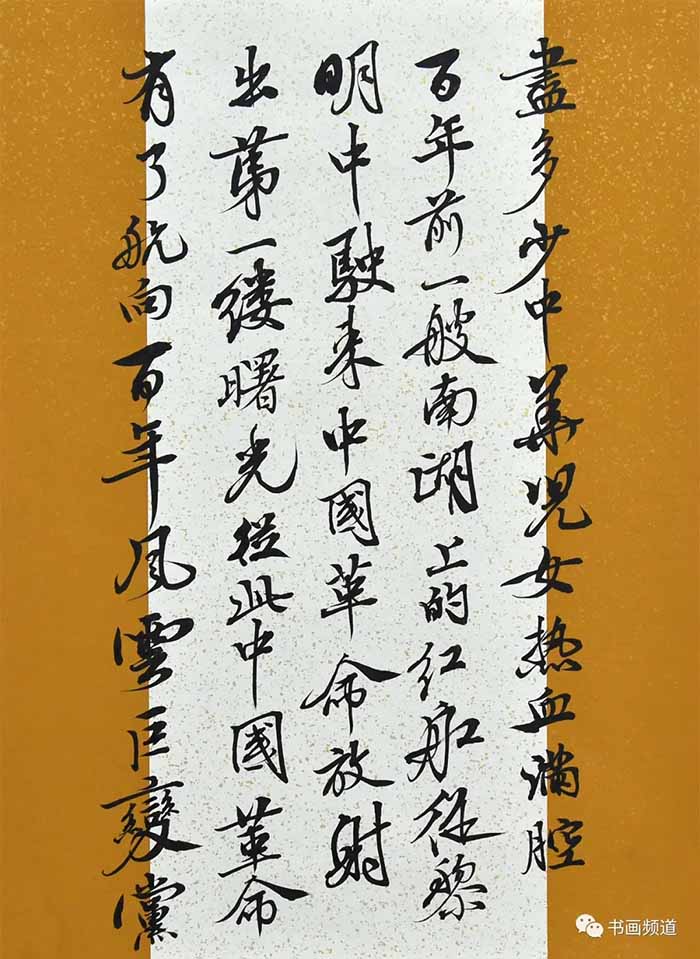 盡多少中華児女热血满腔
百年前一艘南湖上的红船従黎
明中駛来中國革命放射
出第一缕曙光從此中國革命
有了航向百年風雲巨變黨
书画频道